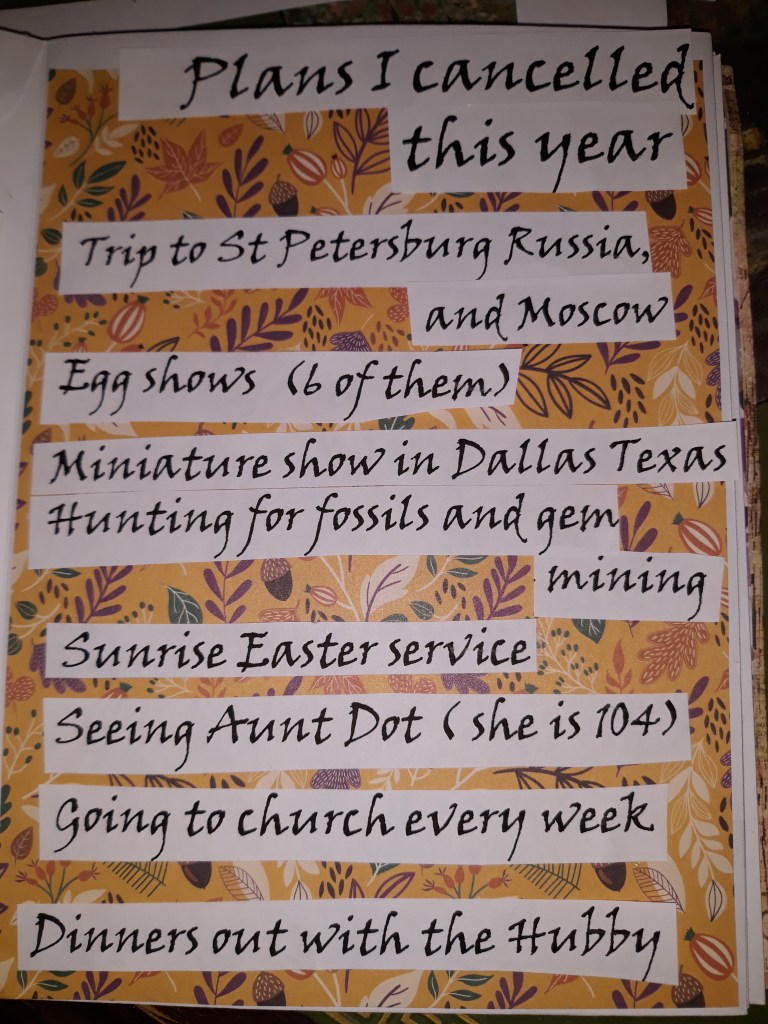 Plans I cancelled
this year
Trip to St Petersburg Russia,
and Moscow
Egg shows (6 of them)
Miniature show in Dallas Texas
Hunting for fossils and gem
mining
Sunrise Easter service
Seeing Aunt Dot ( she is 104)
Going to church every week
Dinners out with the Hubby